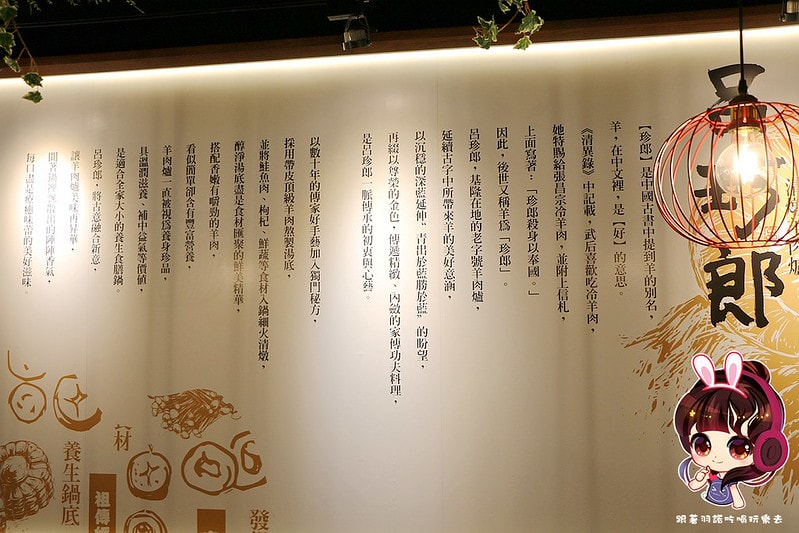 呂珍郎
【珍郎】是中國古書中提到羊的別名，
羊，在中文裡，是【好】的意思。
《清異錄》中記載，武后喜歡吃冷羊肉，
她特賜給張昌宗冷羊肉，並附上信札，
上面寫著：「珍郎殺身以奉國。」
因此，後世又稱羊為「珍郎」。
呂珍郎，基隆在地的老字號羊肉爐，
延續古字中所帶來羊的美好意涵，
以沉穩的深藍延伸“青出於藍勝於藍”的盼望，
再綴以尊榮的金色，傳遞精緻、內斂的家傳功夫料理，
是呂珍郎一脈傳承的初衷與心藝。
以數十年的傳家好手藝加入獨門秘方，
採用帶皮頂級羊肉熬製湯底，
並將鮭魚肉、枸杞、鮮蔬等食材入鍋細火清燉，
醇淨湯底盡是食材匯聚的鮮美精華，
搭配香嫩有嚼勁的羊肉，
看似簡單卻含有豐富營養，
羊肉爐一直被視為養身珍品，
具溫潤滋養、補中益氣等價值，
是適合全家大小的養生食膳鍋。
呂珍郎，將古意融合新意，
讓羊肉爐美味再昇華，
聞著湯裡飄散出的陣陣香氣，
每一口都是療癒味蕾的美好滋味。
發
祖傳
材
養生鍋底
跟著羽諾吃喝玩樂去